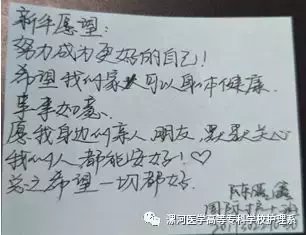 新年愿望:
努力成为更好的自己!
希望我的家人可以身体健康.
事事如意.
愿我身边的亲人 朋友, 默默关心
我的人都能安好!♡
总之希望一切都好.
漯河医学高等专科学校护理系